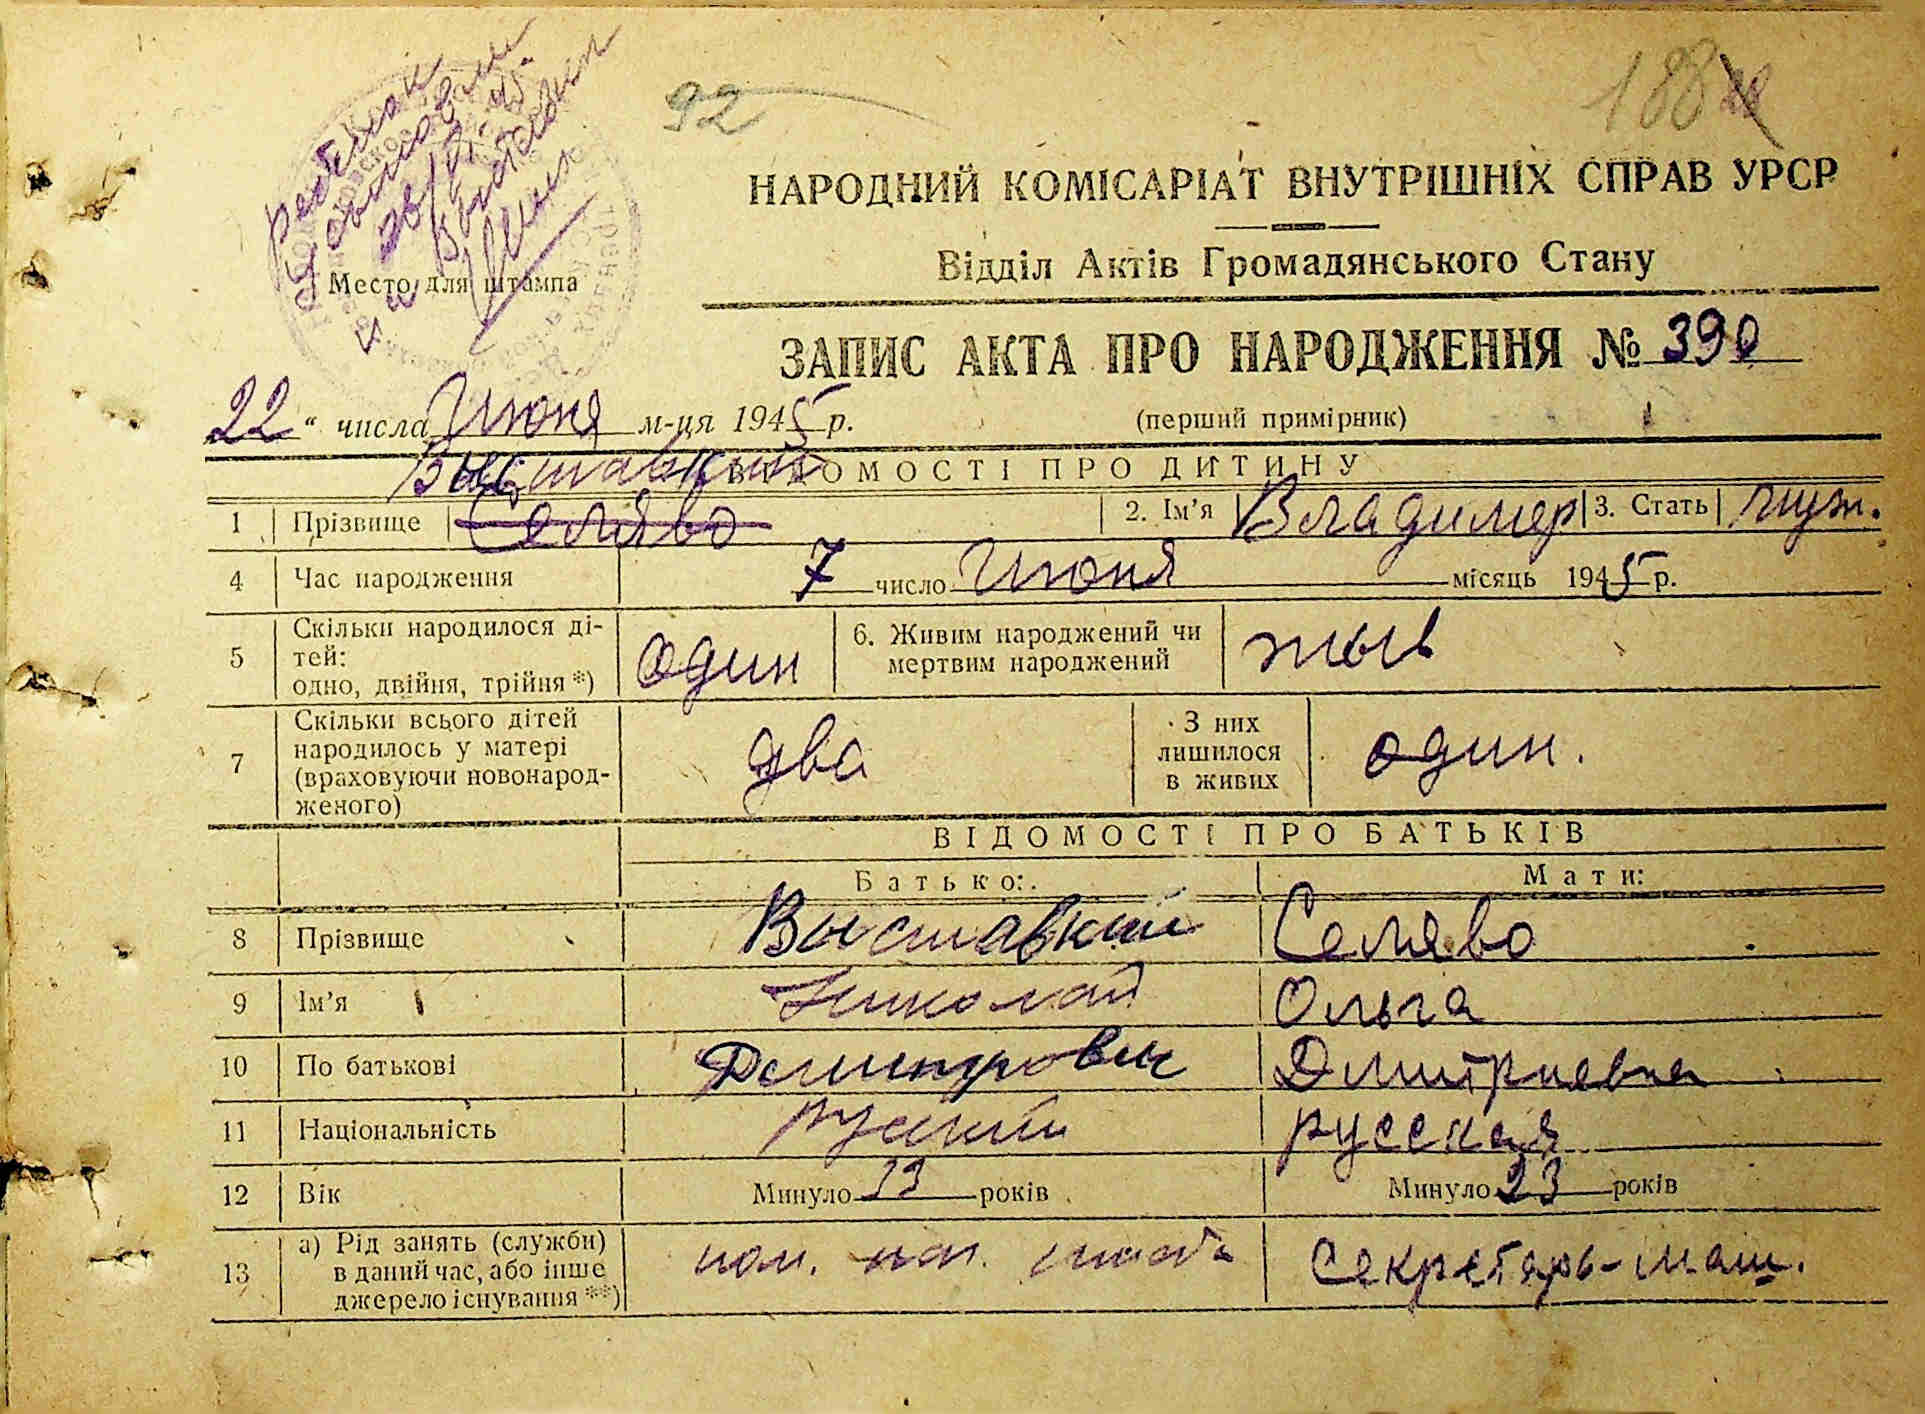 92
188
НАРОДНИЙ КОМІСАРІАТ ВНУТРІШНІХ СПРАВ УРСР
Відділ Актів Громадянського Стану
Место для штампа
ЗАПИС АКТА ПРО НАРОДЖЕННЯ № 390
22 " числа Июня м-ця 1945 р. (перший примірник)
Выставкин
ВІДОМОСТІ ПРО ДИТИНУ
1 Прізвище Селяво 2. Ім'я Владимер 3. Стать муж.
4 Час народження 7 число Июня місяць 1945 р.
5 Скільки народилося ді-
тей:
одно, двійня, трійня *) один 6. Живим народжений чи
мертвим народжений жыв
7 Скільки всього дітей
народилось у матері
(враховуючи новонарод-
женого) два З них
лишилося
в живих один.
ВІДОМОСТІ ПРО БАТЬКІВ
Батько: Мати:
8 Прізвище Выставкин Селяво
9 Ім'я Николай Ольга
10 По батькові Ольга Дмитриевна
11 Національність русский русская
12 Вік Минуло років Минуло 23 років
13 а) Рід занять (служби)
в даний час, або інше
джерело існування **) пом. нач. штаба Секретарь-маш.